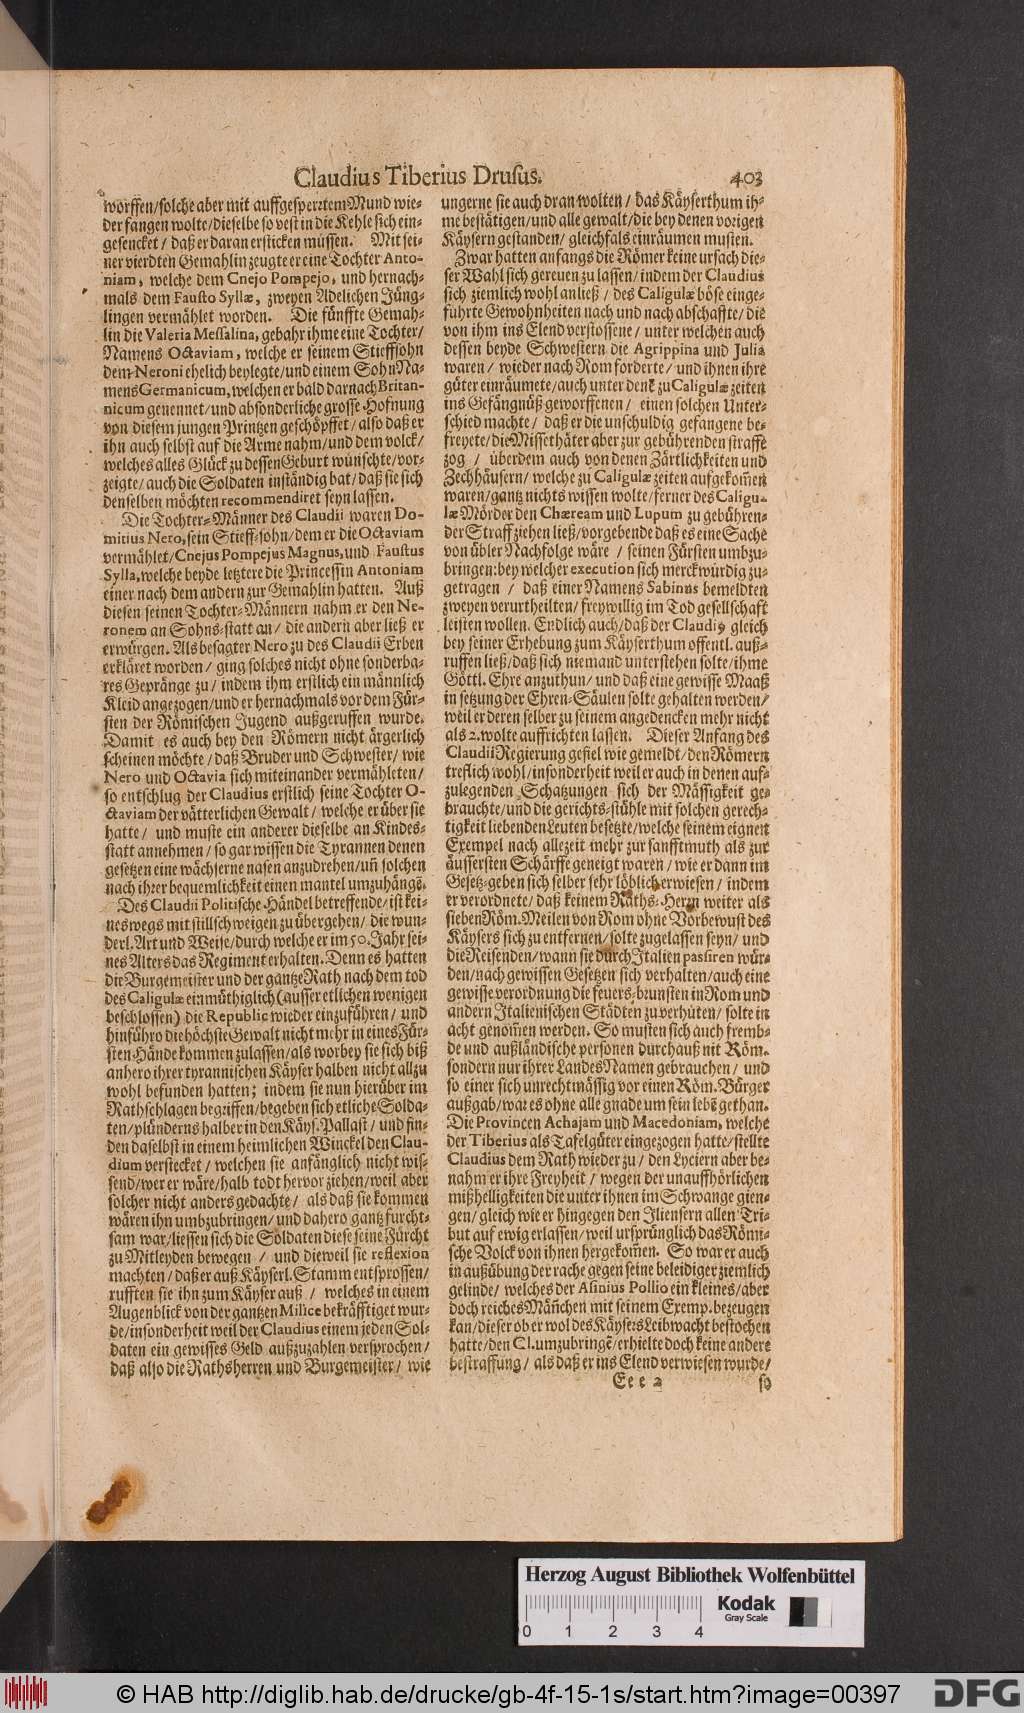 Claudius Tiberius Drusus.
403
worffen/solche aber mit auffgesperztem Mund wie-
der fangen wolte/dieselbe so vest in die Kehle sich ein-
gesencket / daß er daran ersticken müssen. Mit sei-
ner vierdten Gemahlin zeugte er eine Tochter Anto-
niam, welche dem Cnejo Pompejo, und hernach-
mals dem Fausto Syllæ, zweyen Adelichen Jüng-
lingen vermählet worden. Die fünffte Gemah-
lin die Valeria Messalina, gebahr ihme eine Tochter/
Namens Octaviam, welche er seinem Stieffsohn
dem Neroni ehelich beylegte/und einem Sohn Na-
mens Germanicum, welchen er bald darnach Britan-
nicum genennet/und absonderliche grosse Hofnung
von diesem jungen Printzen geschöpffet/also daß er
ihn auch selbst auf die Arme nahm/und dem volck/
welches alles Glück zu dessen Geburt wünschte/vor-
zeigte/auch die Soldaten inständig bat/daß sie sich
denselben möchten recommendiret seyn lassen.
Die Tochter-Männer des Claudii waren Do-
mitius Nero, sein Stieff-sohn/dem er die Octaviam
vermählet/Cnejus Pompejus Magnus, und Faustus
Sylla, welche beyde letztere die Princessin Antoniam
einer nach dem andern zur Gemahlin hatten. Auß
diesen seinen Tochter-Männern nahm er den Ne-
ronem an Sohns-statt an/ die andern aber ließ er
erwürgen. Als besagter Nero zu des Claudii Erben
erkläret worden/ ging solches nicht ohne sonderba-
res Gepränge zu/ indem ihm erstlich ein männlich
Kleid angezogen/und er hernachmals vor dem Für-
sten der Römischen Jugend außgeruffen wurde.
Damit es auch bey den Römern nicht ärgerlich
scheinen möchte/ daß Bruder und Schwester/ wie
Nero und Octavia sich miteinander vermähleten/
so entschlug der Claudius erstlich seine Tochter O-
ctaviam der vätterlichen Gewalt/ welche er über sie
hatte/ und muste ein anderer dieselbe an Kindes-
statt annehmen/ so gar wissen die Tyrannen denen
gesetzen eine wächserne nasen anzudrehen/uñ solchen
nach ihrer bequemlichkeit einen mantel umzuhängẽ.
Des Claudii Politische Händel betreffende/ist kei-
neswegs mit stillschweigen zu übergehen/ die wun-
derl. Art und Weise/durch welche er im 50. Jahr sei-
nes Alters das Regiment erhalten. Denn es hatten
die Burgemeister und der gantze Rath nach dem tod
des Caligulæ einmüthiglich (ausser etlichen wenigen
beschlossen) die Republic wieder einzuführen/ und
hinführo die höchste Gewalt nicht mehr in eines Für-
sten Hände kommen zulassen/als worbey sie sich biß
anhero ihrer tyrannischen Käyser halben nicht allzu
wohl befunden hatten; indem sie nun hierüber im
Rathschlagen begriffen/begeben sich etliche Solda-
ten/plünderns halber in den Käys. Pallast/ und fin-
den daselbst in einem heimlichen Winckel den Clau-
dium verstecket/ welchen sie anfänglich nicht wis-
send/wer er wäre/halb todt hervor ziehen/weil aber
solcher nicht anders gedachte/ als daß sie kommen
wären ihn umbzubringen/und dahero gantz furcht-
sam war/liessen sich die Soldaten diese seine Furcht
zu Mitleyden bewegen / und dieweil sie reflexion
machten/daß er auß Käyserl. Stamm entsprossen/
rufften sie ihn zum Käyser auß / welches in einem
Augenblick von der gantzen Milice bekräfftiget wur-
de/insonderheit weil der Claudius einem jeden Sol-
daten ein gewisses Geld außzuzahlen versprochen/
daß also die Rathsherren und Burgemeister/ wie
ungerne sie auch dran wolten/ das Käyserthum ih-
me bestätigen/und alle gewalt/die bey denen vorigen
Käysern gestanden/ gleichfals einräumen musten.
Zwar hatten anfangs die Römer keine ursach die-
ser Wahl sich gereuen zu lassen/indem der Claudius
sich ziemlich wohl anließ/ des Caligulæ böse einge-
führte Gewohnheiten nach und nach abschaffte/ die
von ihm ins Elend verstossene/ unter welchen auch
dessen beyde Schwestern die Agrippina und Julia
waren/ wieder nach Rom forderte/ und ihnen ihre
güter einräumete/auch unter denẽ zu Caligulæ zeiten
ins Gefängnüß geworffenen/ einen solchen Unter-
schied machte/ daß er die unschuldig gefangene be-
freyete/die Missethäter aber zur gebührenden straffe
zog / überdem auch von denen Zärtlichkeiten und
Zechhäusern/ welche zu Caligulæ zeiten aufgekom̃en
waren/gantz nichts wissen wolte/ferner des Caligu-
læ Mörder den Chæream und Lupum zu gebühren-
der Straff ziehen ließ/vorgebende daß es eine Sache
von übler Nachfolge wäre/ seinen Fürsten umbzu-
bringen: bey welcher execution sich merckwürdig zu-
getragen / daß einer Namens Sabinus bemeldten
zweyen verurtheilten/freywillig im Tod gesellschaft
leisten wollen. Endlich auch/daß der Claudiꝰ gleich
bey seiner Erhebung zum Käyserthum offentl. auß-
ruffen ließ/daß sich niemand unterstehen solte/ihme
Göttl. Ehre anzuthun/ und daß eine gewisse Maaß
in setzung der Ehren-Säulen solte gehalten werden/
weil er deren selber zu seinem angedencken mehr nicht
als 2. wolte auffrichten lassen. Dieser Anfang des
Claudii Regierung gefiel wie gemeldt/den Römern
treflich wohl/insonderheit weil er auch in denen auf-
zulegenden Schatzungen sich der Mässigkeit ge-
brauchte/und die gerichts-stühle mit solchen gerech-
tigkeit liebenden Leuten besetzte/welche seinem eignen
Exempel nach allezeit mehr zur sanfftmuth als zur
äussersten Schärffe geneigt waren/ wie er dann im
Gesetz-geben sich selber sehr löblich erwiesen/ indem
er verordnete/ daß keinem Raths-Herrn weiter als
sieben Röm. Meilen von Rom ohne Vorbewust des
Käysers sich zu entfernen/solte zugelassen seyn/ und
die Reisenden/wann sie durch Italien passiren wür-
den/nach gewissen Gesetzen sich verhalten/auch eine
gewisse verordnung die feuers-brunsten in Rom und
andern Italienischen Städten zu verhüten/ solte in
acht genom̃en werden. So musten sich auch fremb-
de und außländische personen durchauß nit Röm.
sondern nur ihrer Landes Namen gebrauchen/ und
so einer sich unrechtmässig vor einen Röm. Bürger
außgab/war es ohne alle gnade um sein lebẽ gethan.
Die Provincen Achajam und Macedoniam, welche
der Tiberius als Tafelgüter eingezogen hatte/stellte
Claudius dem Rath wieder zu/ den Lyciern aber be-
nahm er ihre Freyheit/ wegen der unauffhörlichen
mißhelligkeiten die unter ihnen im Schwange gien-
gen/gleich wie er hingegen den Iliensern allen Tri-
but auf ewig erlassen/weil ursprünglich das Römi-
sche Volck von ihnen hergekom̃en. So war er auch
in außübung der rache gegen seine beleidiger ziemlich
gelinde/ welches der Asinius Pollio ein kleines/aber
doch reiches Mäñchen mit seinem Exemp. bezeugen
kan/dieser ob er wol des Käysers Leibwacht bestochen
hatte/den Cl. umzubringẽ/erhielte doch keine andere
bestraffung/ als daß er ins Elend verwiesen wurde/
Eee 2
so
Herzog August Bibliothek Wolfenbüttel
Kodak
Gray Scale
0 1 2 3 4
© HAB http://diglib.hab.de/drucke/gb-4f-15-1s/start.htm?image=00397
DFG